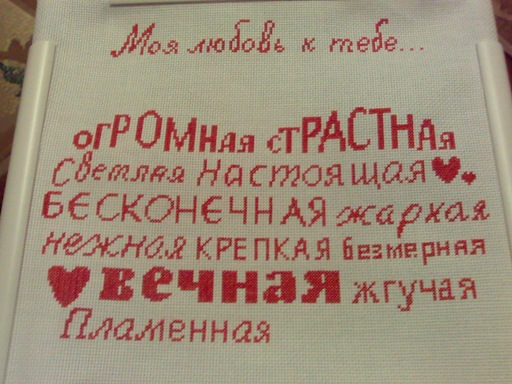 Моя любовь к тебе...
огРОМНая стРАСТНАя
Светлая Настоящая
БЕСКОНЕЧНАЯ жаркая
нежная КРЕПКАЯ безмерная
вечная жгучая
Пламенная